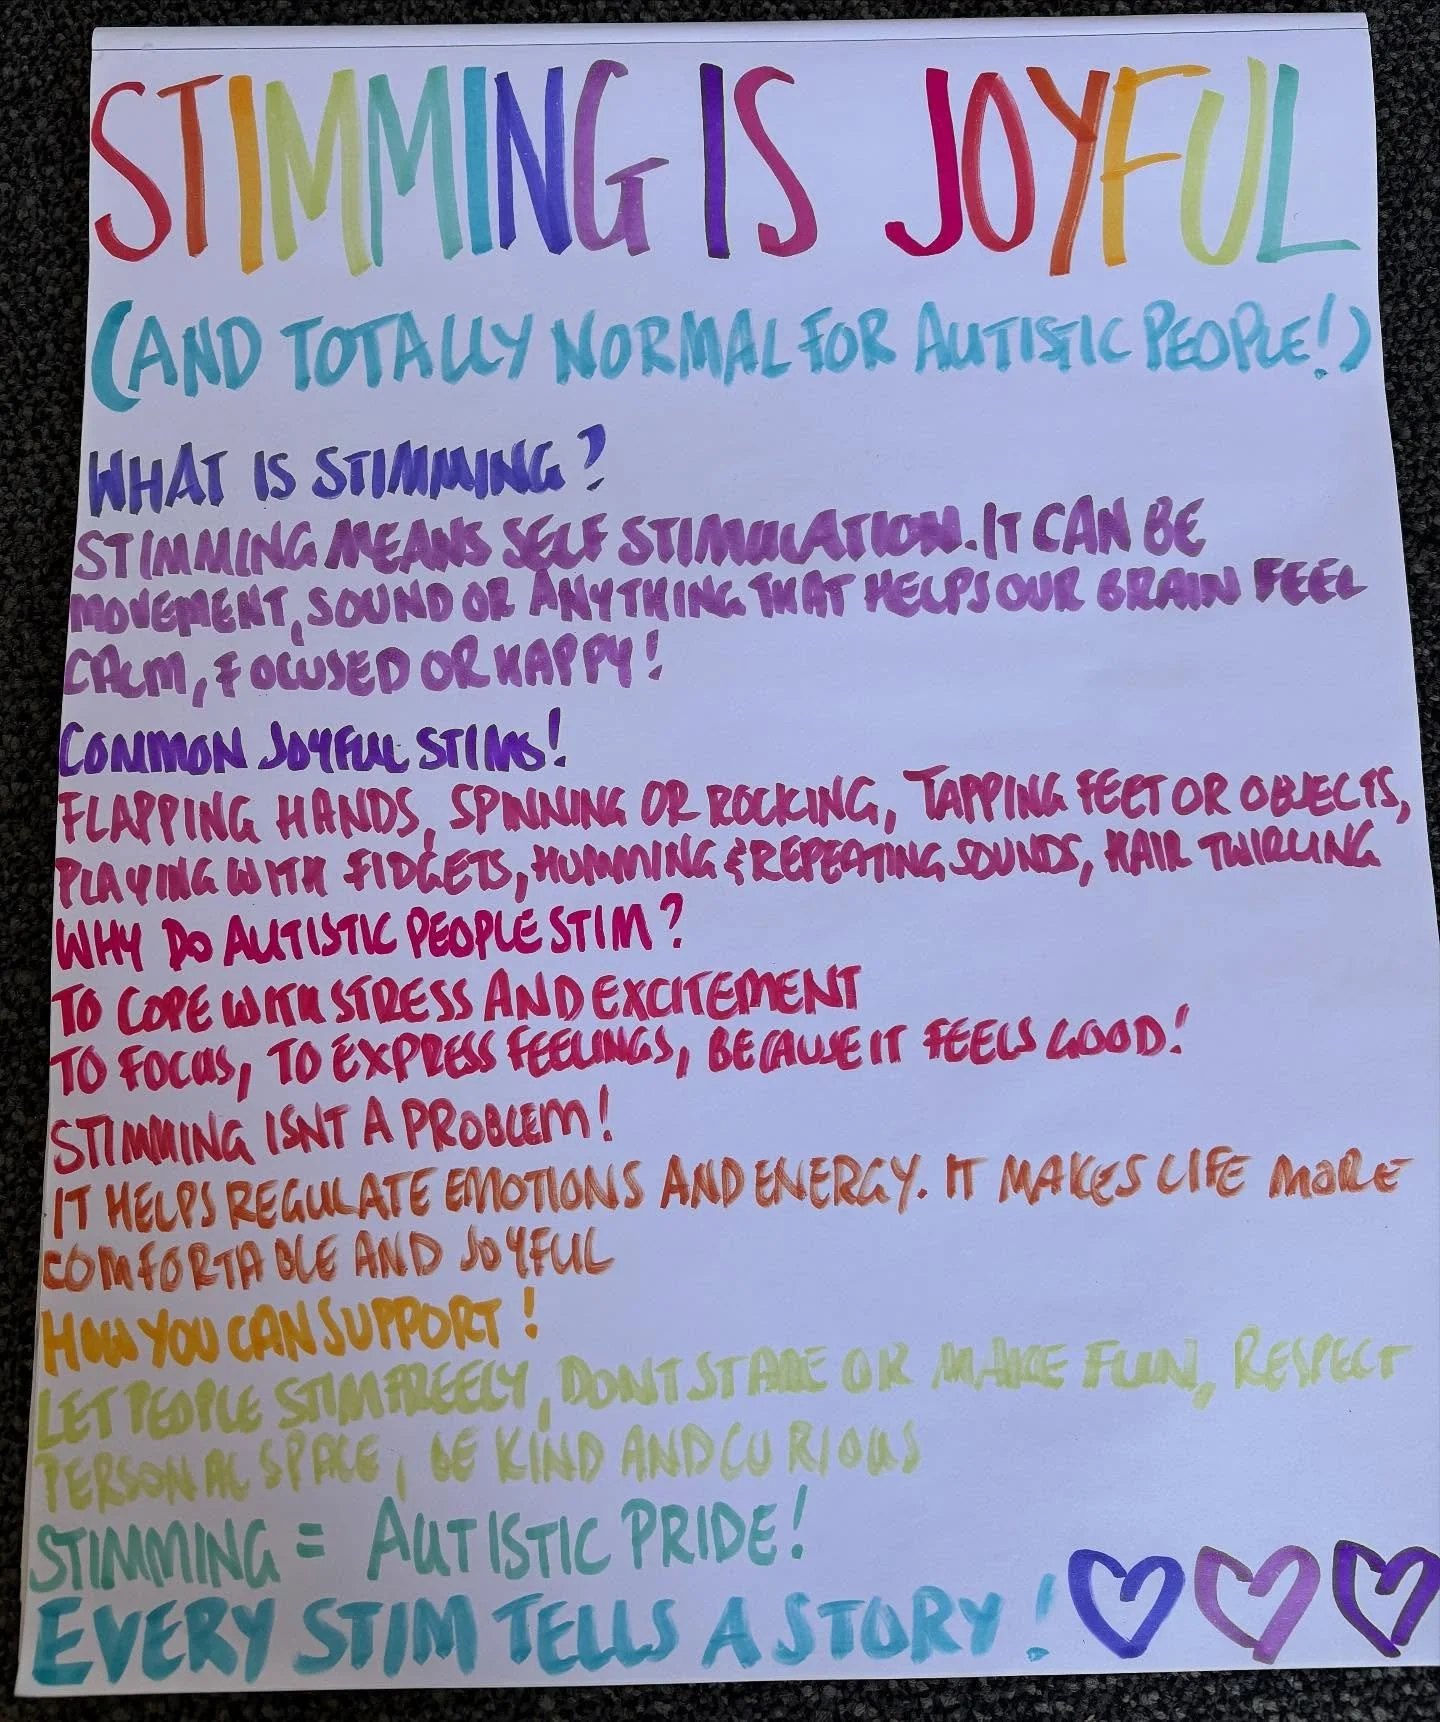 STIMMING IS JOYFUL
(AND TOTALLY NORMAL FOR AUTISTIC PEOPLE!)
WHAT IS STIMMING?
STIMMING MEANS SELF STIMULATION. IT CAN BE
MOVEMENT, SOUND OR ANYTHING THAT HELPS OUR BRAIN FEEL
CALM, FOCUSED OR HAPPY!
COMMON JOYFUL STIMS!
FLAPPING HANDS, SPINNING OR ROCKING, TAPPING FEET OR OBJECTS,
PLAYING WITH FIDGETS, HUMMING & REPEATING SOUNDS, HAIR TWIRLING
WHY DO AUTISTIC PEOPLE STIM?
TO COPE WITH STRESS AND EXCITEMENT
TO FOCUS, TO EXPRESS FEELINGS, BECAUSE IT FEELS GOOD!
STIMMING ISNT A PROBLEM!
IT HELPS REGULATE EMOTIONS AND ENERGY. IT MAKES LIFE MORE
COMFORTABLE AND JOYFUL
HOW YOU CAN SUPPORT!
LET PEOPLE STIM FREELY, DONT STARE OR MAKE FUN, RESPECT
PERSONAL SPACE, BE KIND AND CURIOUS
STIMMING = AUTISTIC PRIDE!
EVERY STIM TELLS A STORY!